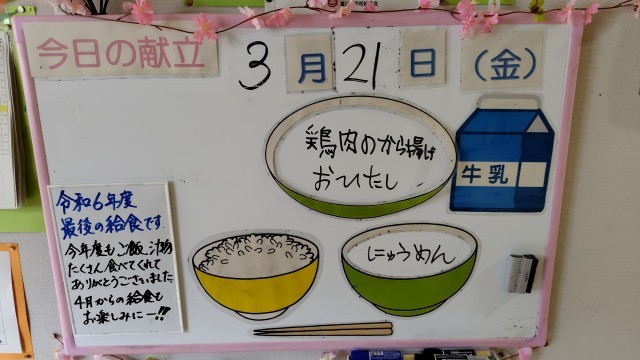 今日の献立 3月21日(金)
鶏肉のから揚げ
おひたし
牛乳
にゅうめん
令和6年度
最後の給食です
今年度もご飯、汁物
たくさん食べてくれて
ありがとうございました
4月からの給食も
お楽しみにー!!